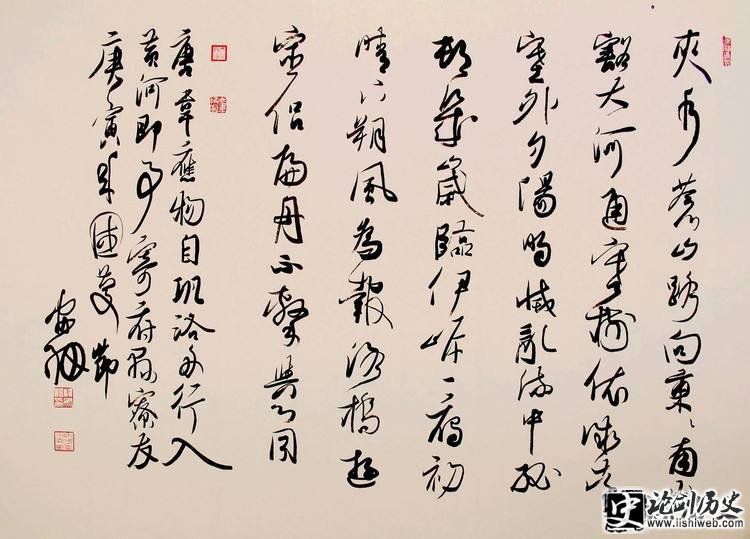 夾水蒼山路向東〻南山
豁大河通寒樹依微遠
外夕陽明滅亂流中孤
村幾歲臨伊岸一雁初
晴下朔風為報洛橋遊
宦侶扁舟不繫與心同
唐韋應物自鞏洛舟行入
黃河即事寄府縣僚友
庚寅年國慶節
史 论剑历史
www.lishiweb.com